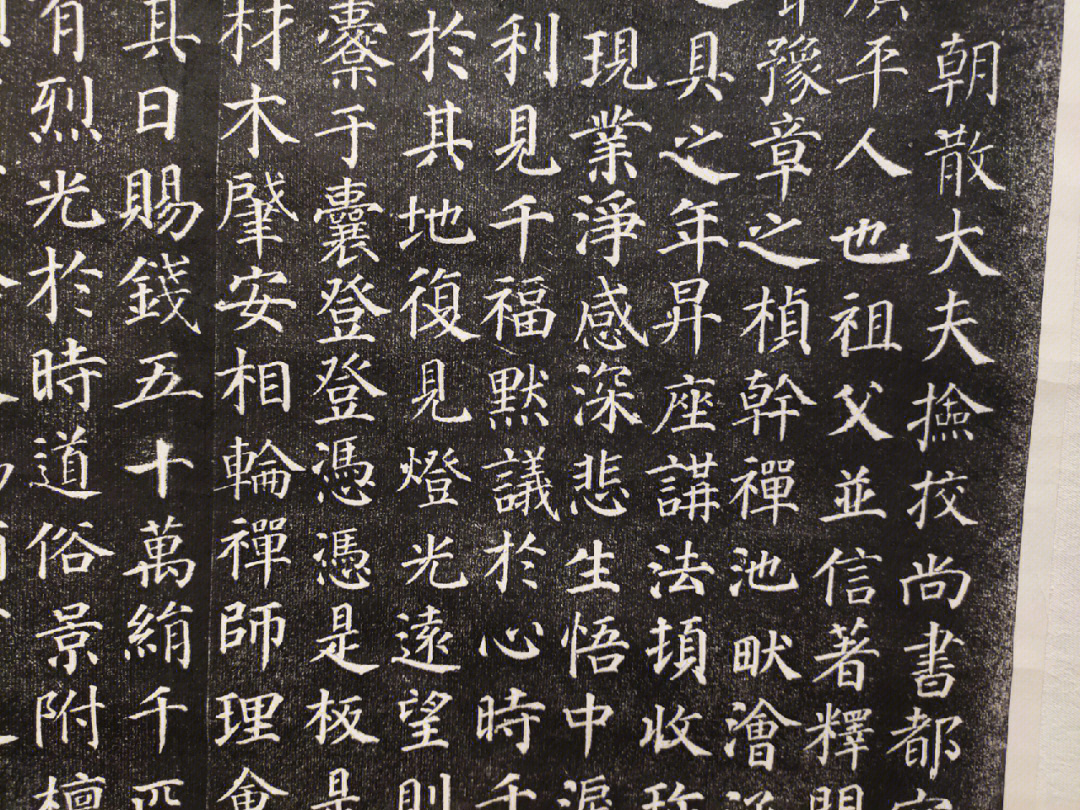 朝散大夫撿挍尚書都
平人也祖父並信著釋門
豫章之楨幹禪池畎澮
具之年昇座講法頓收
現業淨感深悲生悟中淚
利見千福默議於心時千
於其地復見燈光遠望則
橐于囊登登憑憑是板是
材木肇安相輪禪師理會
其日賜錢五十萬絹千匹
有烈光於時道俗景附檀